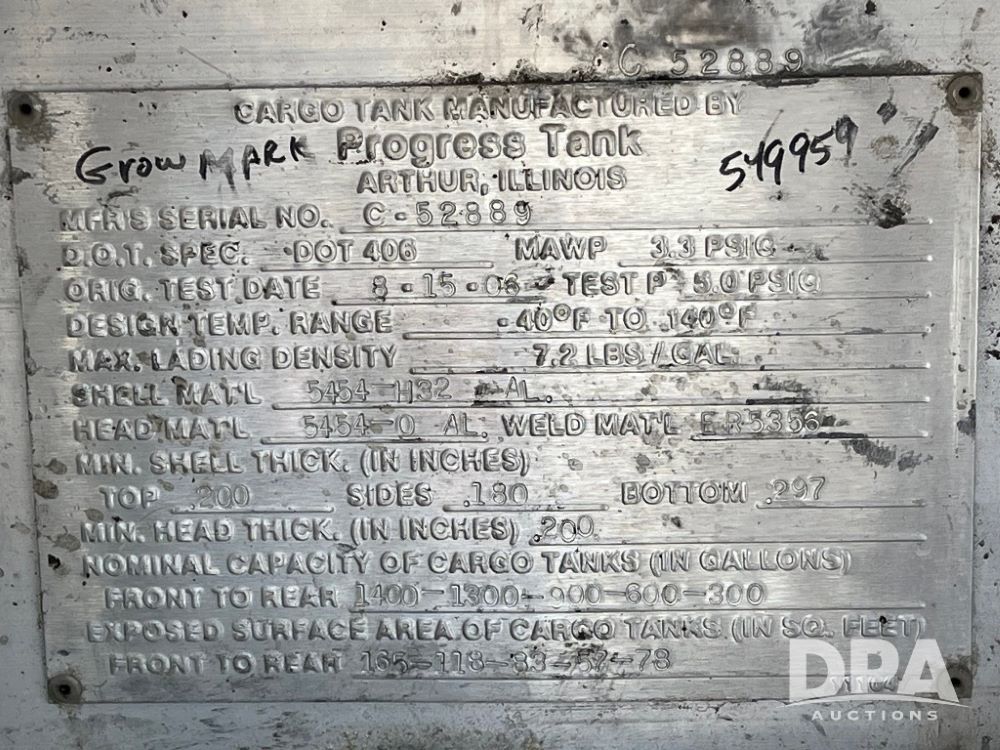 C 52889
CARGO TANK MANUFACTURED BY
Grow MARK Progress Tank 549959
ARTHUR, ILLINOIS
MFR'S SERIAL NO. C-52889
D.O.T. SPEC. DOT 406 MAWP 3.3 PSIG
ORIG. TEST DATE 8-15-06 TEST P 5.0 PSIG
DESIGN TEMP. RANGE -40°F TO 140°F
MAX. LADING DENSITY 7.2 LBS/GAL.
SHELL MAT'L 5454-H32 AL.
HEAD MAT'L 5454-0 AL. WELD MAT'L ER5356
MIN. SHELL THICK. (IN INCHES)
TOP .200 SIDES .180 BOTTOM .297
MIN. HEAD THICK. (IN INCHES) .200
NOMINAL CAPACITY OF CARGO TANKS (IN GALLONS)
FRONT TO REAR 1400-1300-900-600-300
EXPOSED SURFACE AREA OF CARGO TANKS (IN SQ. FEET)
FRONT TO REAR 165-118-83-57-78
DPA
AUCTIONS